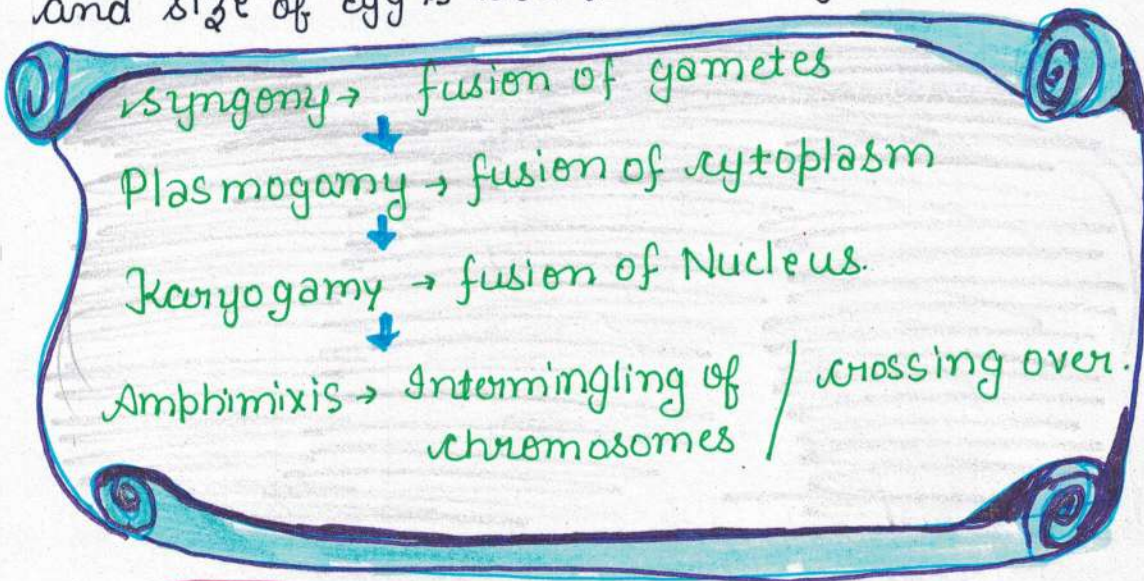 and size of egg is
syngony → fusion of gametes
Plasmogamy → fusion of cytoplasm
Karyogamy → fusion of Nucleus.
Amphimixis → Intermingling of / crossing over.
chromosomes